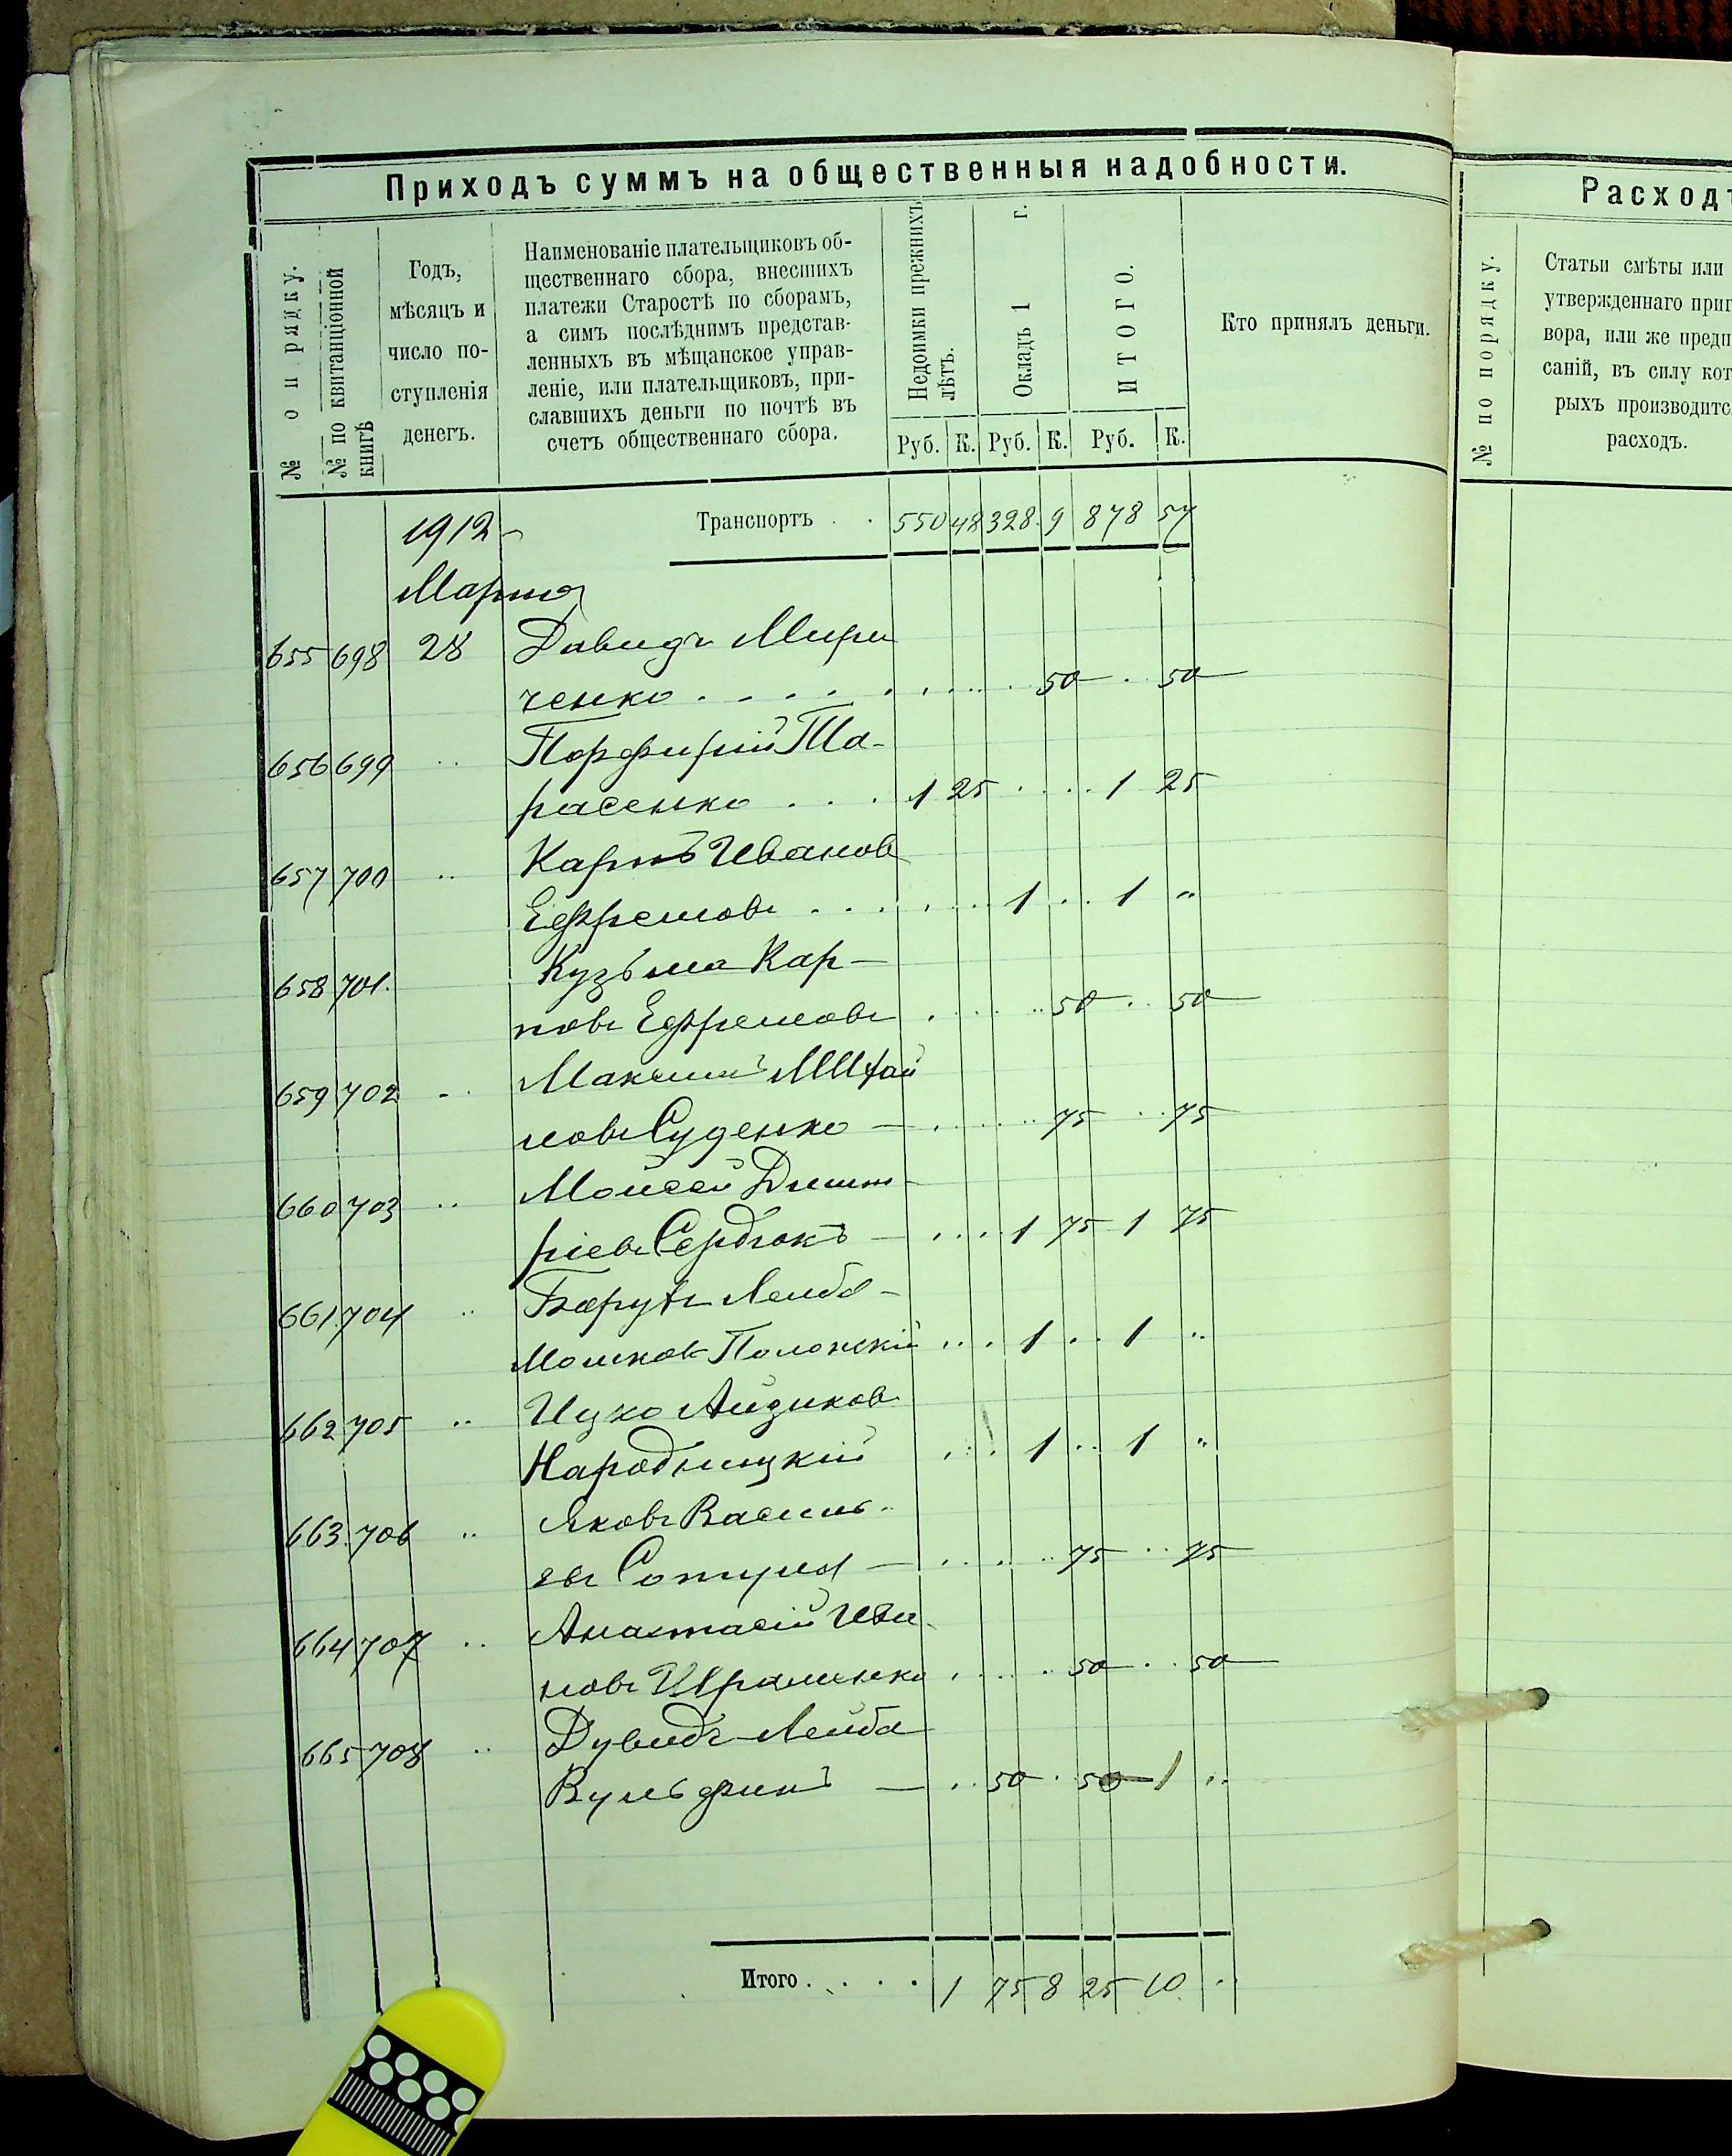 Приходъ суммъ на общественныя надобности.
№ по рядку.
№ по квитанціонной книгѣ
Годъ,
мѣсяцъ и
число по-
ступленія
денегъ.
Наименованіе плательщиковъ об-
щественнаго сбора, внесшихъ
платежи Старостѣ по сборамъ,
а симъ послѣднимъ представ-
ленныхъ въ мѣщанское управ-
леніе, или плательщиковъ, при-
славшихъ деньги по почтѣ въ
счетъ общественнаго сбора.
Недоимки прежнихъ лѣтъ.
Окладъ 1 г.
ИТОГО.
Кто принялъ деньги.
Руб. К. Руб. К. Руб. К.
1912 Транспортъ . . 550 48 328 9 878 57
Марта
655 698 28 Давидъ Мири
ченко . . . . 50 . 50
656 699 .. Порфирій Та-
расенко . . . 1 25 . . . . 1 25
657 700 .. Карпъ Иванов
Ефремовъ . . . 1 . . 1 ..
658 701. Кузьма Кар-
повъ Ефремовъ . 50 . 50
659 702 ..
новъ Суденко — 75 . . 75
660 703 .. Мойсей Дмит
ріевъ Сердюкъ — 1 75 1 75
661 704 .. Барухъ Лейба-
Мошков Полонскій . . . 1 . . 1 ..
662 705 .. Ицко Айзиков
Народицкій . . . 1 . . 1 ..
663 706 .. Яковъ Василь-
евъ — 75 . . 75
664 707 .. Анастасій Ива
новъ . 50 . . 50
665 708 .. Дувидъ-Лейба
Вульфинъ — . . 50 . 50 1 ..
Итого . . . . 1 75 8 25 10 ..
Расходъ
№ по порядку.
Статьи смѣты или
утвержденнаго приг
вора, или же предп
саній, въ силу кот
рыхъ производитс
расходъ.